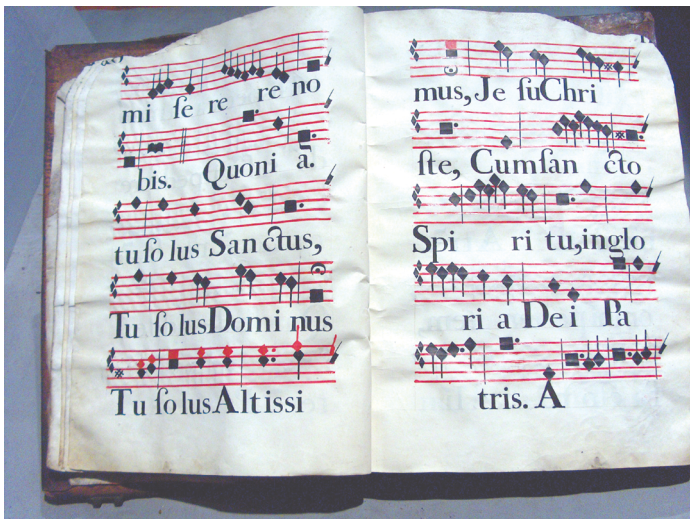 mi ſe re re no
bis. Quoni ã.
tu ſo lus Sanctus,
Tu ſo lus Domi nus
Tu ſo lus Altissi
mus, Je ſu Chri
ſte, Cum ſan cto
Spi ri tu, in glo
ri a De i Pa
tris. A